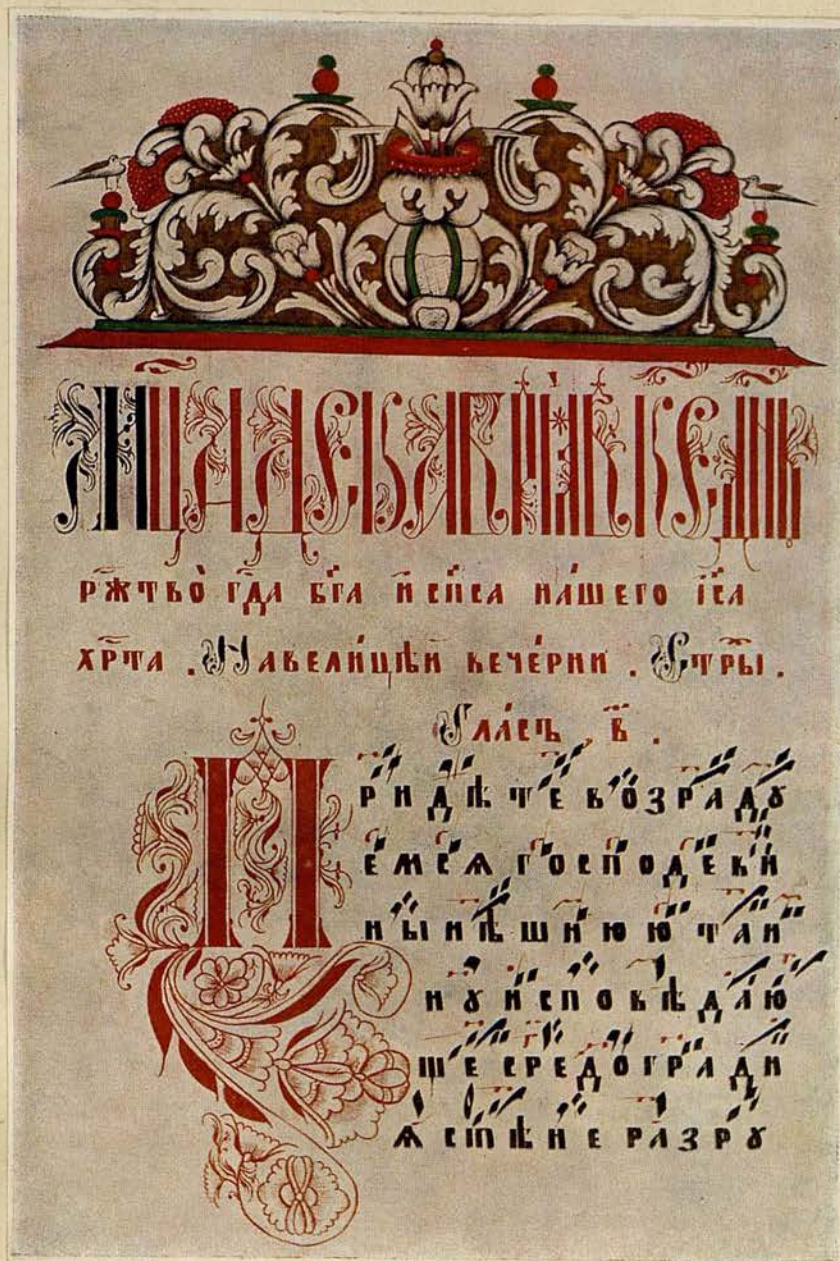 мц҃а декабрѧ въ к҃е дн҃ь
рж҃тво̀ гд҃а бг҃а и҆ сп҃са на́шего і҆с҃а
хр҃та . На велицѣй вече́рни . Стр҃ы .
Гла́съ в҃ .
Придѣте возрадꙋ
емсѧ господеви
нынѣшнюю таи
нꙋ исповѣдаю
ще средоградИ
ѧ стѣне разрꙋ